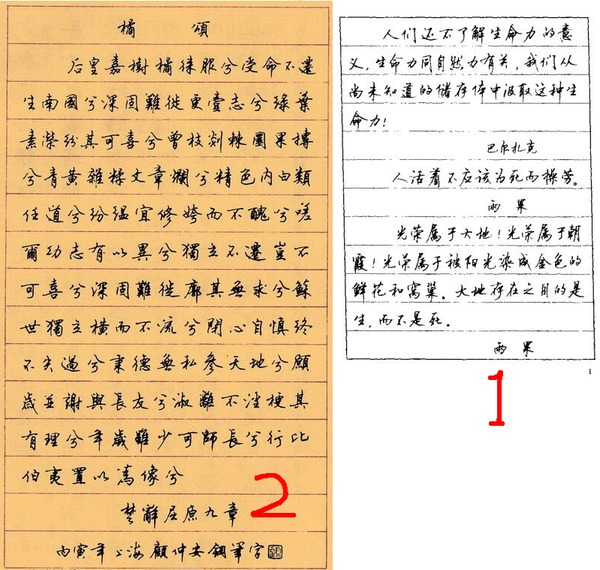 橘 頌
后皇嘉樹橘徕服兮受命不遷
生南國兮深固難徙更壹志兮綠葉
素榮紛其可喜兮曾枝剡棘圜果摶
兮青黃雜糅文章爛兮精色內白類
任道兮紛緼宜修姱而不醜兮嗟
爾幼志有以異兮獨立不遷豈不
可喜兮深固難徙廓其無求兮蘇
世獨立橫而不流兮閉心自慎終
不失過兮秉德無私參天地兮願
歲並謝與長友兮淑離不淫梗其
有理兮年歲雖少可師長兮行比
伯夷置以為像兮
楚辭屈原九章
丙寅年上海顧仲安鋼筆字
2
人们还不了解生命力的意
义，生命力同自然力有关，我们从
尚未知道的储存体中汲取这种生
命力！
巴尔扎克
人活着不应该为死而操劳。
雨 果
光荣属于大地！光荣属于朝
霞！光荣属于被阳光染成金色的
鲜花和窝巢。大地存在之目的是
生，而不是死。
雨 果
1
1